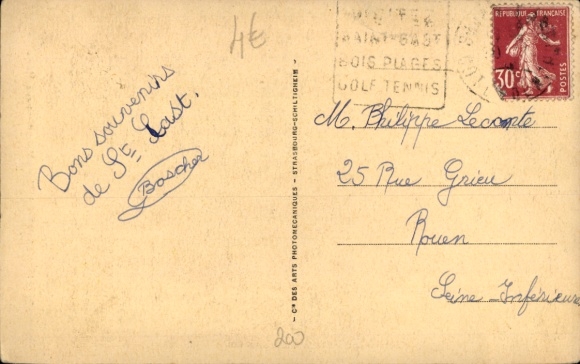 4€
Bons souvenirs
de St Cast.
Boscher
Cie DES ARTS PHOTOMECANIQUES - STRASBOURG-SCHILTIGHEIM -
SAINT-CAST
BOIS PLAGES
GOLF TENNIS
RÉPUBLIQUE FRANÇAISE
30c
POSTES
M. Philippe Lecompte
25 Rue Grieu
Rouen
Seine-Inférieure
200